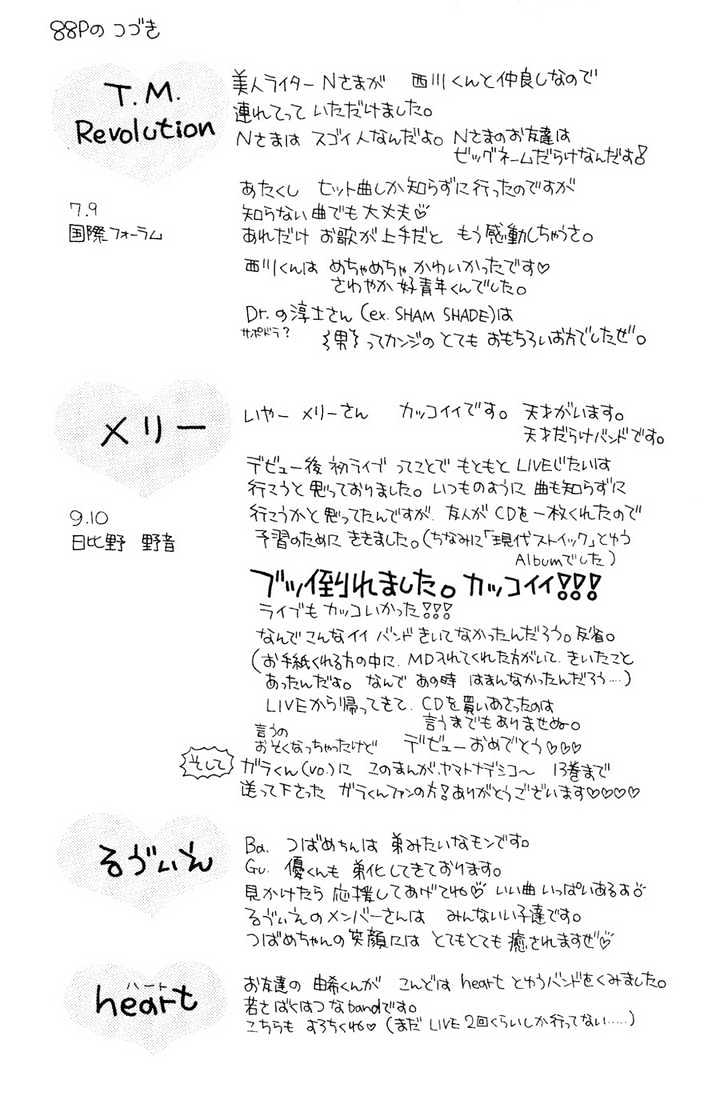 88Pの つづき
T.M.
Revolution
7.9
国際フォーラム
美人ライター Nさまが 西川くんと仲良しなので
連れてって いただけました。
Nさまは スゴイ人なんだよ。Nさまのお友達は
ビッグネームだらけなんだよ!
あたくし ヒット曲しか知らずに行ったのですが
知らない曲でも大丈夫♡
あれだけ お歌が上手だと もう感動しちゃうさ。
西川くんは めちゃめちゃ かわいかったです♡
さわやか好青年くんでした。
Dr.の淳士さん(ex. SHAM SHADE)は
サポドラ?
男 ってカンジの とても おもちろいお方でしたぜ。
メリー
9.10
日比野 野音
いやー メリーさん カッコイイです。天才がいます。
天才だらけバンドです。
デビュー後 初ライブ ってことで もともと LIVEじたいは
行こうと思っておりました。いつものように 曲も知らずに
行こうかと思ってたんですが、友人が CDを一枚くれたので
予習のために ききました。(ちなみに「現代ストイック」とゆう
Albumでした)
ブッ倒れました。カッコイイ!!!
ライブも カッコいかった!!!
なんで こんなイイ バンド きいてなかったんだろう。反省。
(お手紙くれる方の中に、MD入れてくれた方がいて、きいたこと
あったんだよ。なんで あの時 はまんなかったんだろう‥‥)
LIVEから帰ってきて、CDを買いあさったのは
言うまでもありませぬ。
言うの
おそくなっちゃったけど デビューおめでとう♡♡♡
そして
ガラくん(vo.)に このまんが、ヤマトナデシコ〜 13巻まで
送って下さった ガラくんファンの方!ありがとうございます♡♡♡♡
るゔぃえ
Ba. つばめちんは 弟みたいなモンです。
Gu. 優くんも 弟化してきております。
見かけたら 応援してあげてね♡ いい曲いっぱいあるよ♡
るゔぃえのメンバーさんは みんないい子達です。
つばめちゃんの笑顔には とてもとても 癒されますぜ♡
ハート
heart
お友達の 由希くんが こんどは heart とゆうバンドをくみました。
若さばくはつなbandです。
こちらも よろちくね♡(まだ LIVE 2回くらいしか行ってない‥‥‥)